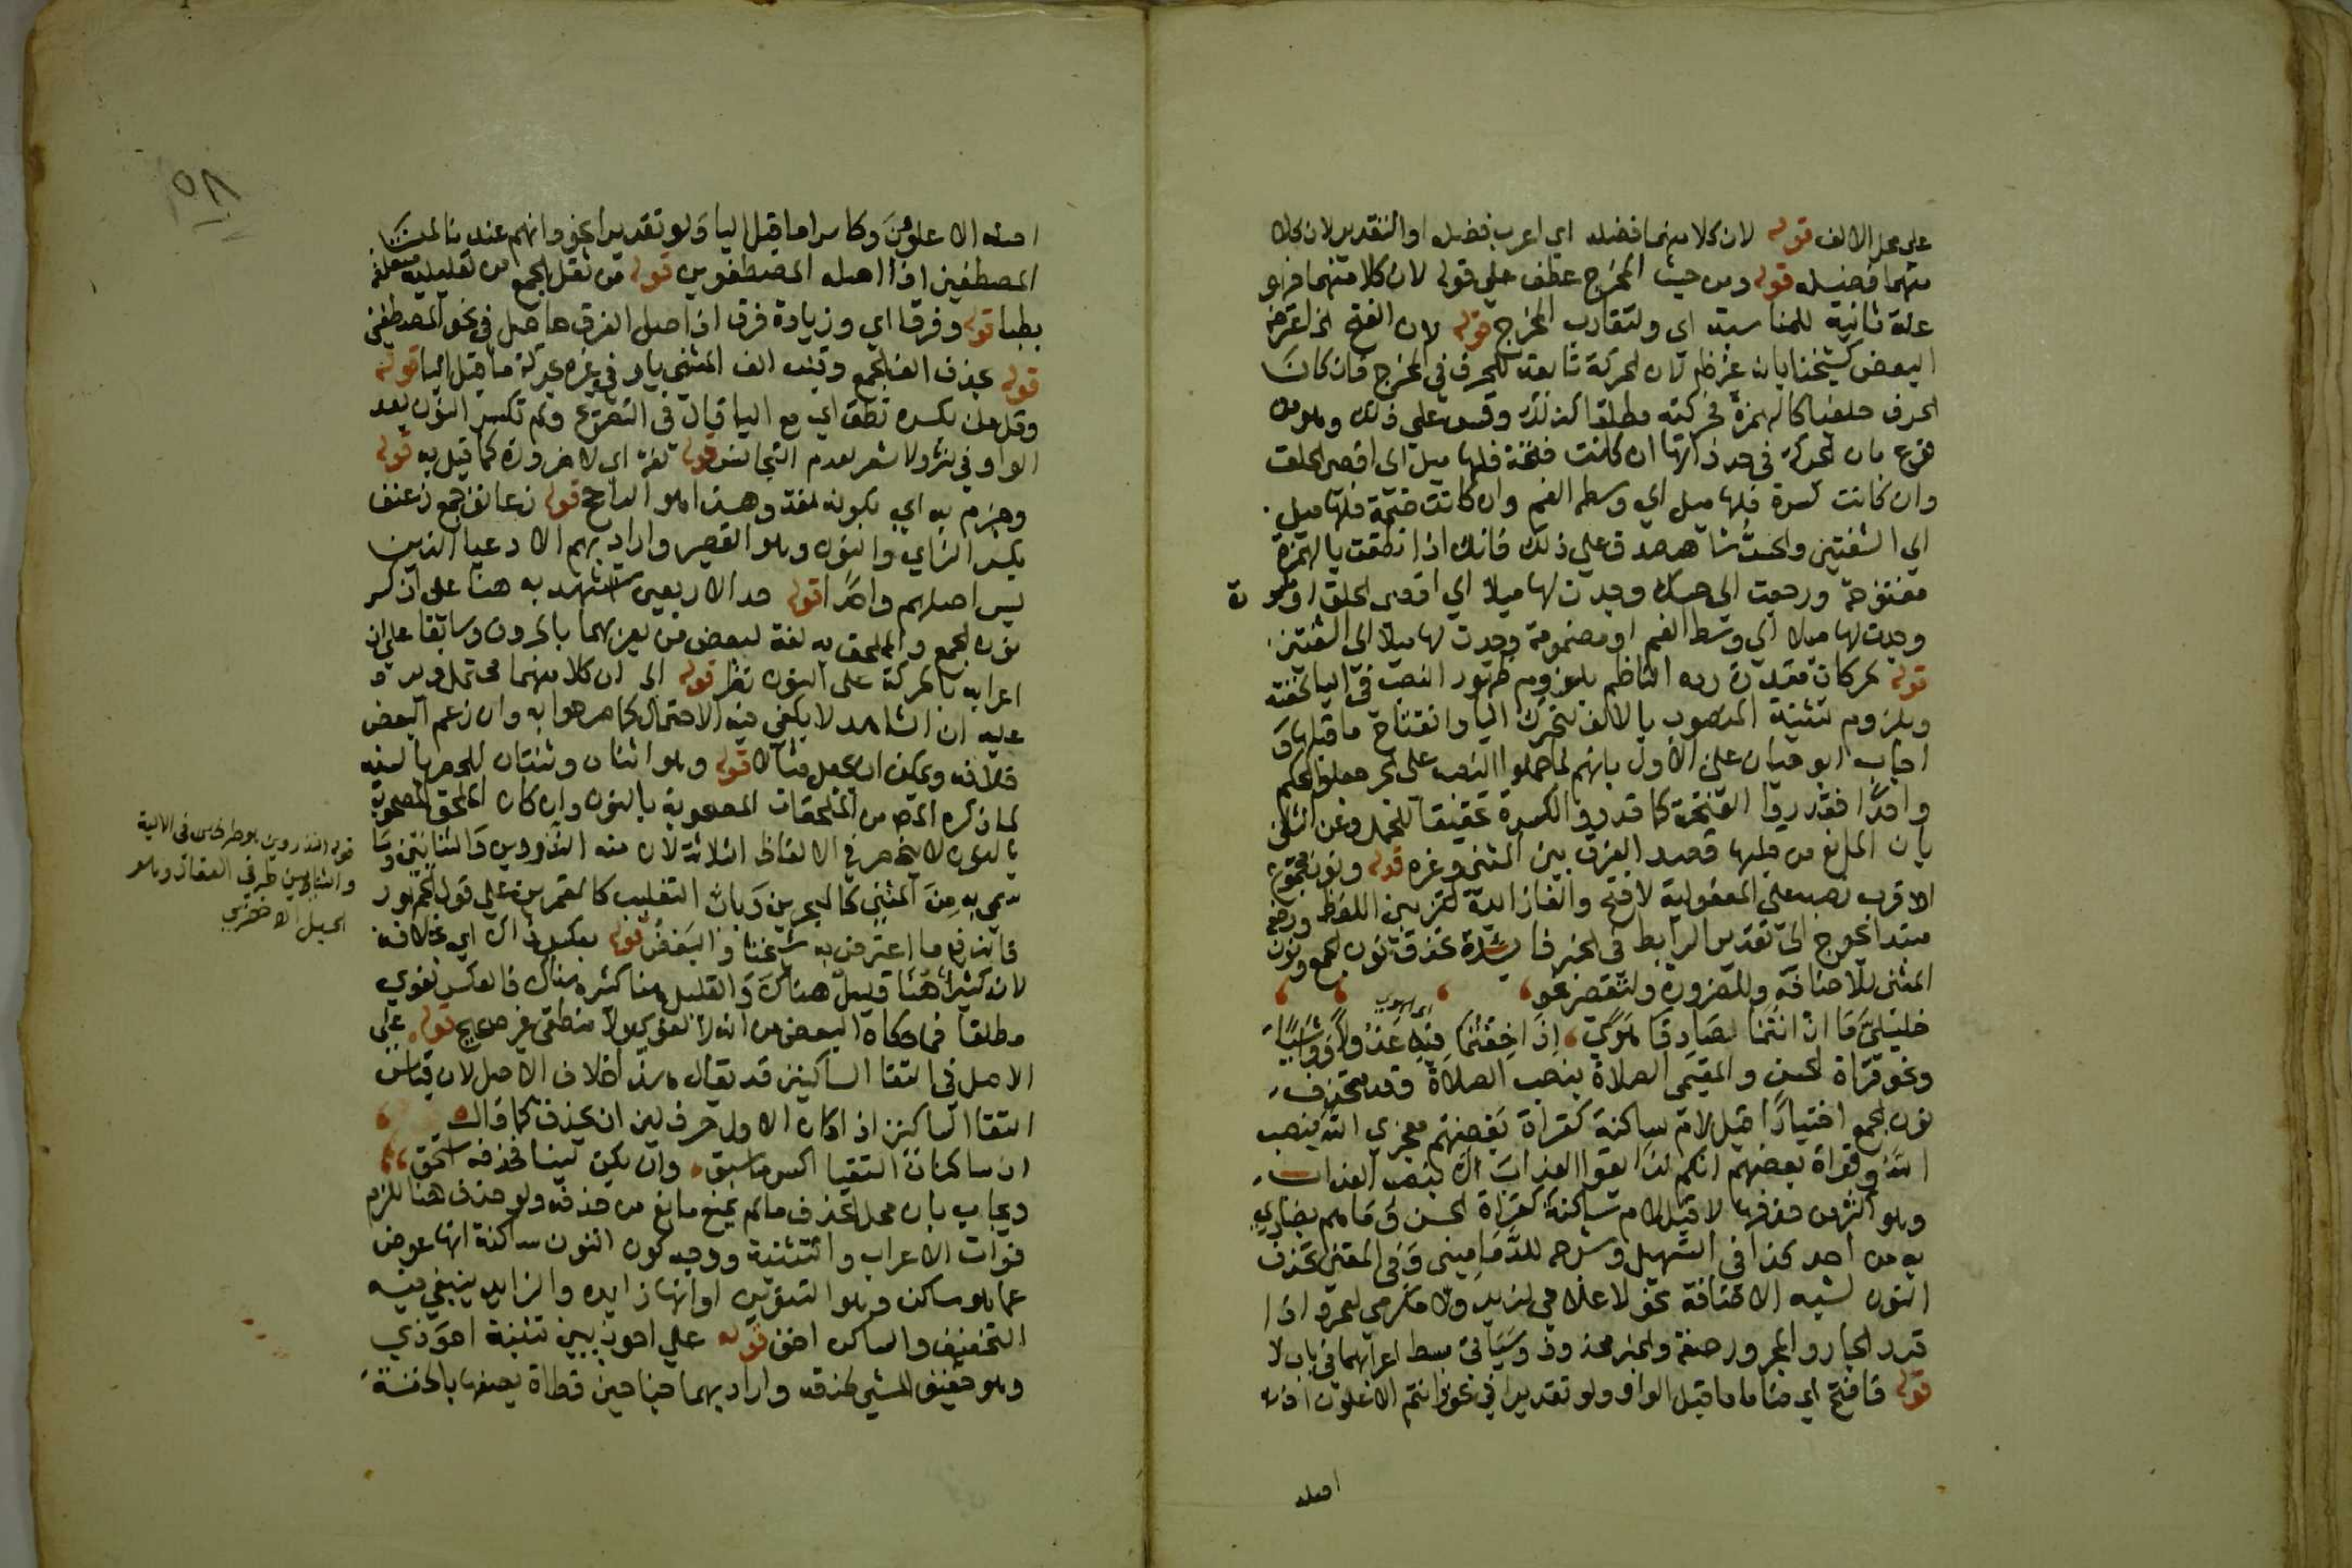 على محل الالف قوله لان كلا منهما فضله اي اعرب فضله او التقدير لان كلا
منهما فضيله قوله ومن حيث المخرج عطف على قوله لان كلا منهما فهو
علة ثانية للمناسبة اي ولتقارب المخرج قوله لان الفتح الخ اعترضه
البعض كشيخنا بان الحركة تابعة للحرف في المخرج فان كان
الحرف حلقيا كالهمزة فحركته مطلقا كذلك وقس على ذلك
بان الحركة في حد ذاتها ان كانت فتحة فلها ميل الى اقصى الحلق
وان كانت كسرة فلها ميل الى وسط الفم وان كانت ضمة فلها ميل
الى الشفتين والحس شاهد صدق على ذلك فانك اذا نطقت بالهمزة
مفتوحة ورجعت الى حسك وجدت لها ميلا الى اقصى الحلق او مكسورة
وجدت لها ميلا الى وسط الفم او مضمومة وجدت لها ميلا الى الشفتين
قوله بحركات مقدرة رده الناظم بلزوم ظهور النصب في اليا لخفته
وبلزوم تثنية المنصوب بالالف لتحرك اليا وانفتاح ما قبلها و
اجاب ابو حيان على الاول بانهم لما حملوا النصب على الجر جعلوا الحكم
واحدا فقدروا الفتحة كما قدروا الكسرة تحقيقا للحمل وعن الثاني
بان المانع من قلبها قصد الفرق بين المثنى وغيره قوله ونون مجموع
الاقرب نصبه على المفعولية لافتح والفا زائدة لتزيين اللفظ ورفعه
مبتدا يحوج الى تقدير الرابط في الخبر فائدة تحذف نون الجمع ونون
المثنى للاضافة وللضرورة ولتقصير نحو
خليلي ما ان انتما الصادقا هوى اذا خفتما فيه عذولا وواشيا
ونحو قراة الحسن والمقيمي الصلاة بنصب الصلاة وقد تحذف
نون الجمع اختيارا قبل لام ساكنة كقراة بعضهم معجزي الله بنصب
الله وقراة بعضهم انكم لذائقوا العذاب الا بنصب العذاب
وهو اكثر من حذفها لا قبل لام ساكنة كقراة الحسن وما هم بضاري
به من احد كذا في التسهيل وشرحه للدماميني وفي المغني تحذف
النون لشبه الاضافة نحو لا غلامي لزيد ولا مكرمي لعمرو اذا
قدر الجار والمجرور صفة والخبر محذوف وسياتي بسط اعرابهما في باب لا
قوله فافتح اي ما قبل الواو ولو تقديرا في نحو وانتم الاعلون اذ
اصله
٥٨
اصله الاعلوون وكاسرا ما قبل اليا ولو تقديرا نحو وانهم عندنا لمن
المصطفين اذ اصله المصطفوين قوله من ثقل الجمع من تعليلية متعلقة
بطلبا قوله وفرقا اي وزيادة فرق اذ اصل الفرق حاصل في نحو المصطفين
قوله بحذف الف الجمع وقلب الف المثنى يا وفي غيره بحركة ما قبل اليا قوله
وقل من بكسره نطق اي مع اليا قال في التصريح ولم تكسر النون بعد
الواو في نثر ولا شعر لعدم التجانس قوله لغة اي لا ضرورة كما قيل به قوله
وجزم به اي بكونه لغة وهذا هو الراجح قوله زعانف جمع زعنف
بكسر الزاي والنون وهو القصير واراد بهم الادعيا الذين
ليس اصلهم واحدا قوله حد الاربعين استشهد به هنا على ان كسر
نون الجمع والملحق به لغة لبعض من يعربهما بالحروف وسابقا على ان
اعرابه بالحركة على النون نظر الى ان كلا منهما محتمل ويرد
عليه ان الشاهد لا يكفي فيه الاحتمال كما صرحوا به وان زعم البعض
خلافه ويمكن ان يجعل مثالا قوله وهو اثنان وثنتان الحصر بالنسبة
لما ذكره المص من الملحقات المصحوبة بالنون وان كان الملحق المصحوب
بالنون لا ينحصر في الالفاظ الثلاثة لان منه المذروين والثنايين وما
سمي به من المثنى كالبحرين وباب التغليب كالقمرين على قول الجمهور
فاندفع ما اعترض به شيخنا والبعض قوله بعكس ذاك اي بخلافه
لان كثيرا هنا قليل هناك والقليل هنا كثير هناك فالعكس لغوي
مطلقا فما حكاه البعض من انه لا لغوي ولا منطقي غير صحيح قوله على
الاصل في التقا الساكنين قد يقال هذا خلاف الاصل لان قياس
التقا الساكنين اذا كان الاول حرف لين ان يحذف كما قال
ان ساكنان التقيا اكسر ما سبق وان يكن لينا فحذفه استحق
ويجاب بان محل الحذف ما لم يمنع مانع من حذفه ولو حذف هنا للزم
فوات الاعراب والتثنية ووجه كون النون ساكنة انها عوض
عما هو ساكن وهو التنوين او انها زايده والزايد ينبغي فيه
التخفيف والساكن اخف قوله على احوذيين تثنية احوذي
وهو خفيف المشي لحذقه واراد بهما جناحين قطاة يصفها بالخفة
قوله المذروين هو طرفي الالية
والثنايين طرفي العقال وهو
الحبل اه خضري